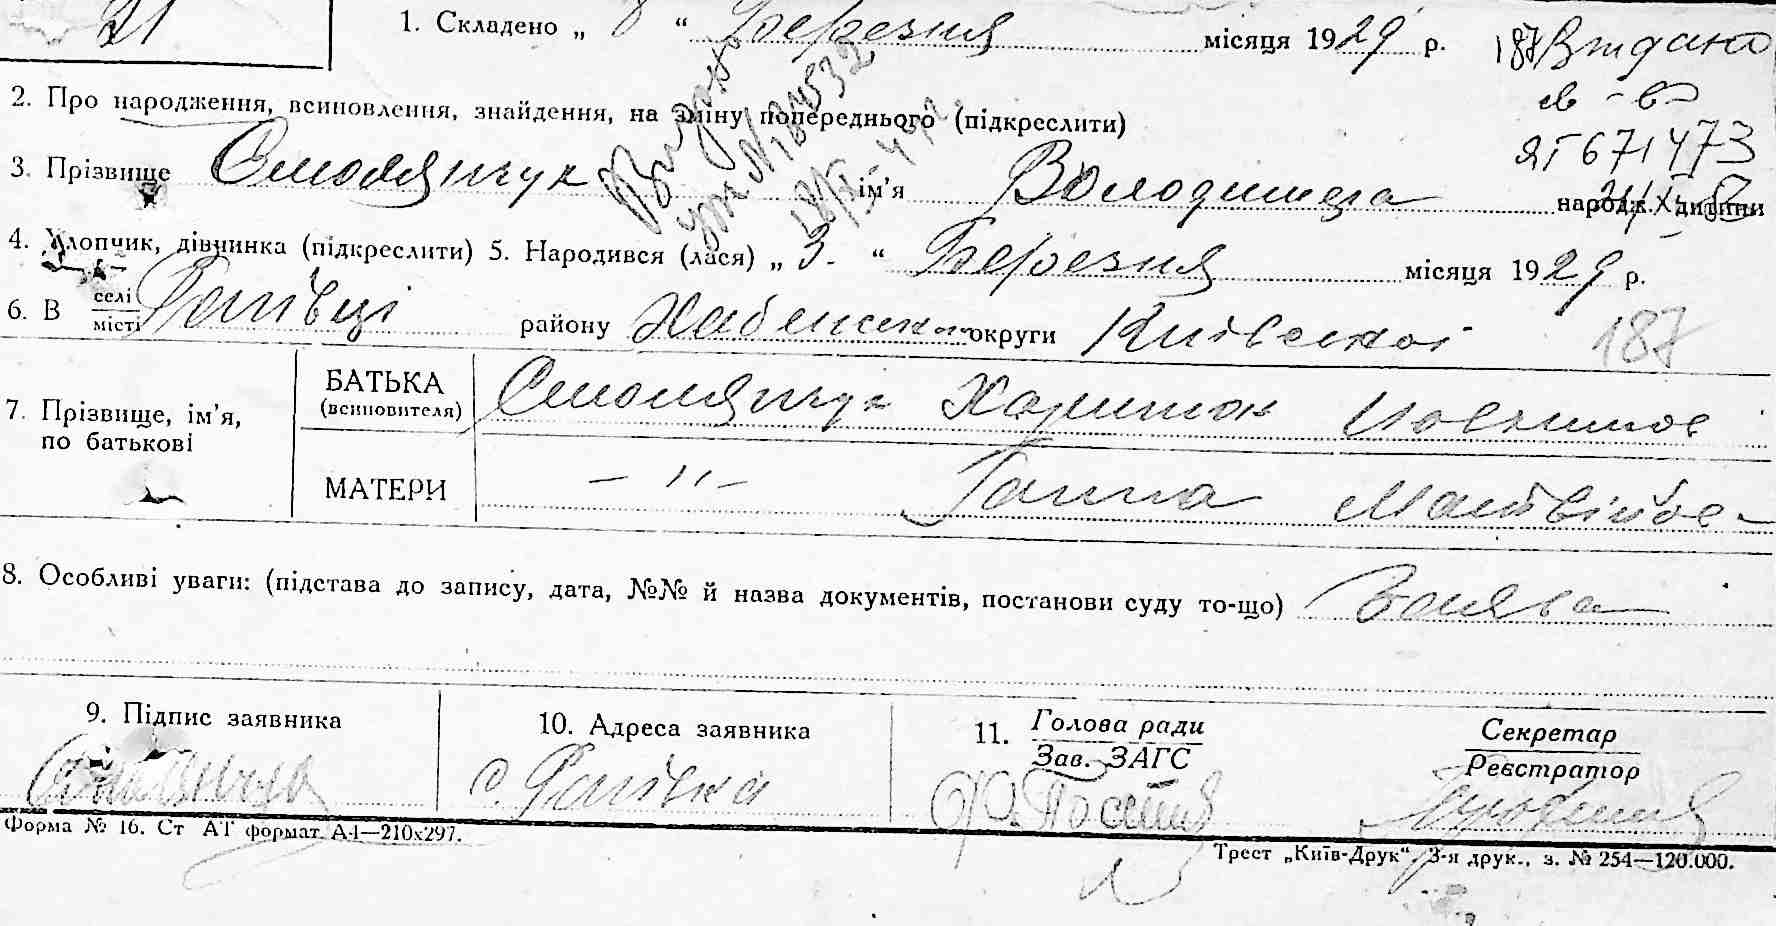 21
1. Складено „ 8 “ Березня місяця 1929 р.
187 Видано
св-во
ЯГ 671473
21/XI-
Видано
18/XI-
2. Про народження, всиновлення, знайдення, на зміну попереднього (підкреслити)
3. Прізвище Смолянчук ім’я Володимера народж. дитини
4. Хлопчик, дівчинка (підкреслити) 5. Народився (лася) „ 3 “ Березня місяця 1929 р.
6. В селі/місті Рагівці району Хабенськ округи Київської
187
7. Прізвище, ім’я, по батькові
БАТЬКА (всиновителя) Смолянчук Харитон
МАТЕРИ — " — Ганна Матвійов-
8. Особливі уваги: (підстава до запису, дата, №№ й назва документів, постанови суду то-що) Заява
9. Підпис заявника
10. Адреса заявника
11. Голова ради / Зав. ЗАГС
Секретар / Реєстратор
с. Рагівка
Форма № 16. Ст АТ формат. А4—210х297.
Трест „Київ-Друк“, 3-я друк., з. № 254—120.000.